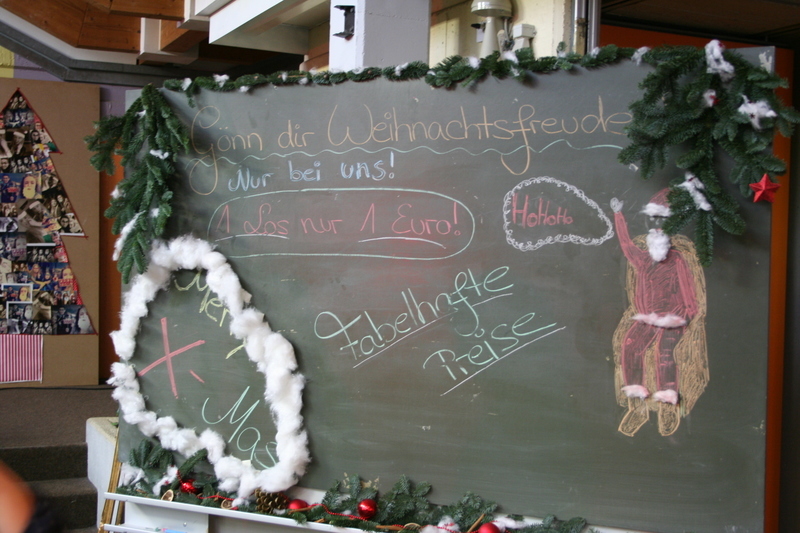 Gönn dir Weihnachtsfreude
Nur bei uns!
1 Los nur 1 Euro!
HoHoHo
Fabelhafte
Preise
Merry
X.
Mas